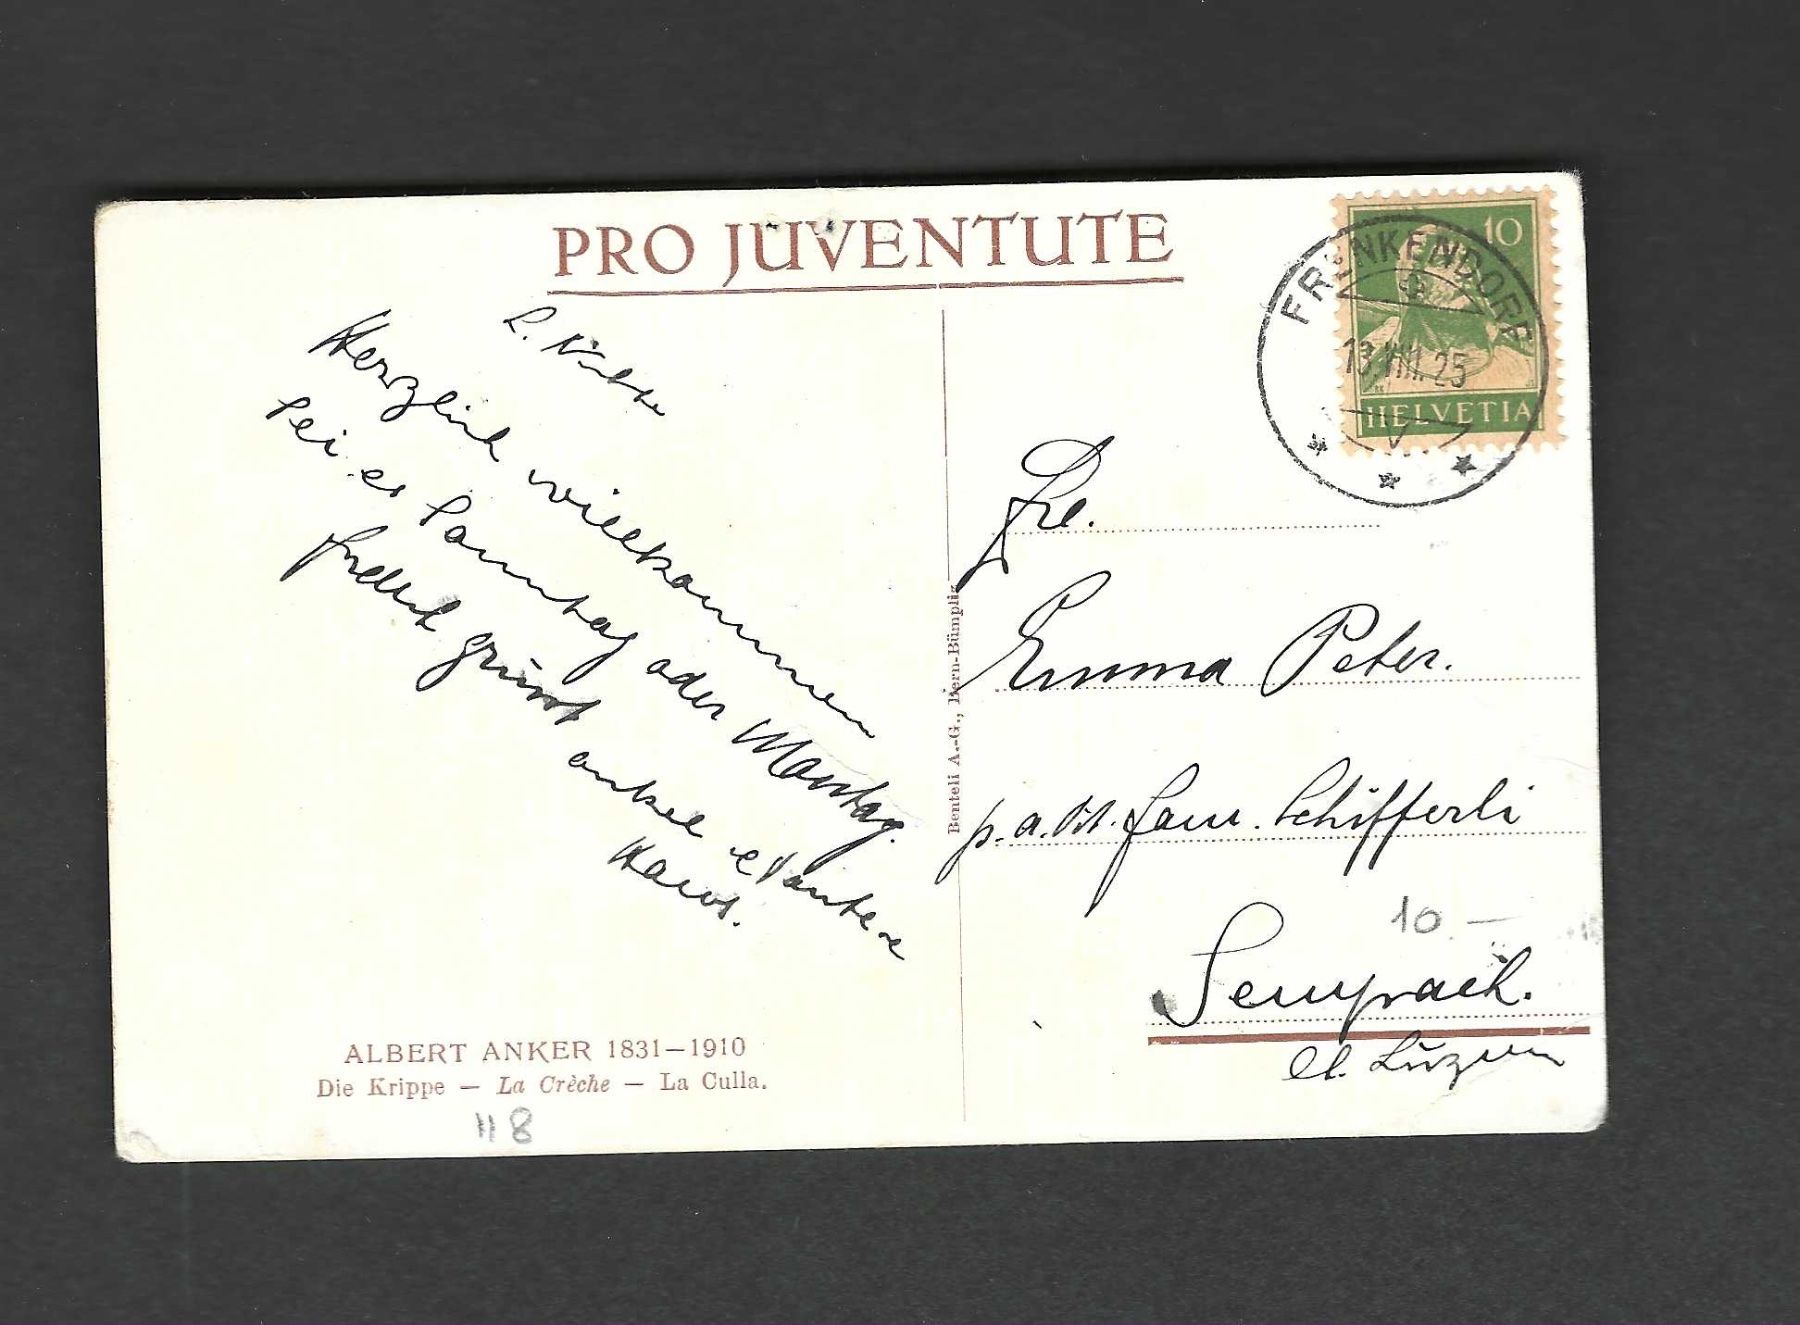 PRO JUVENTUTE
10
FRENKENDORF
13.VIII.25
V
HELVETIA
L. Nichte
Herzlich willkommen
sei es Sonntag oder Montag.
grüsst onkel et tante
Hans.
Frl.
Emma Peter.
p. a. fam. Schifferli
Sempach.
Ct. Luzern
10.—
Benteli A.-G., Bern-Bümpliz
ALBERT ANKER 1831–1910
Die Krippe – La Crèche – La Culla.
118